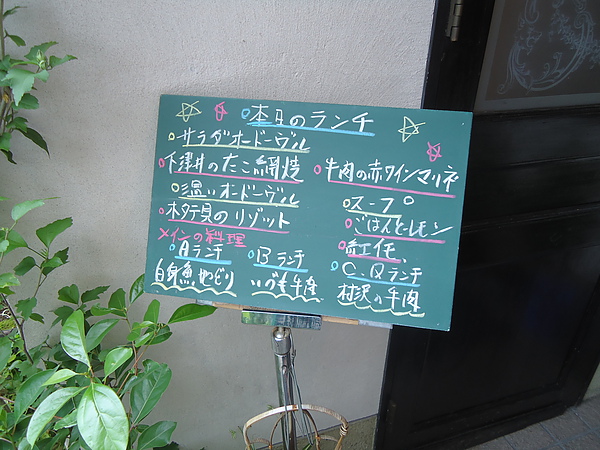 本日のランチ
サラダオードーヴル
下津井のたこ網焼
牛肉の赤ワインマリネ
温いオードーヴル
スープ
ホタテ貝のリゾット
ごはんとレモン
紅イモ、
メインの料理
Aランチ
Bランチ
C、Dランチ
白身魚
いづも牛
村沢の牛肉